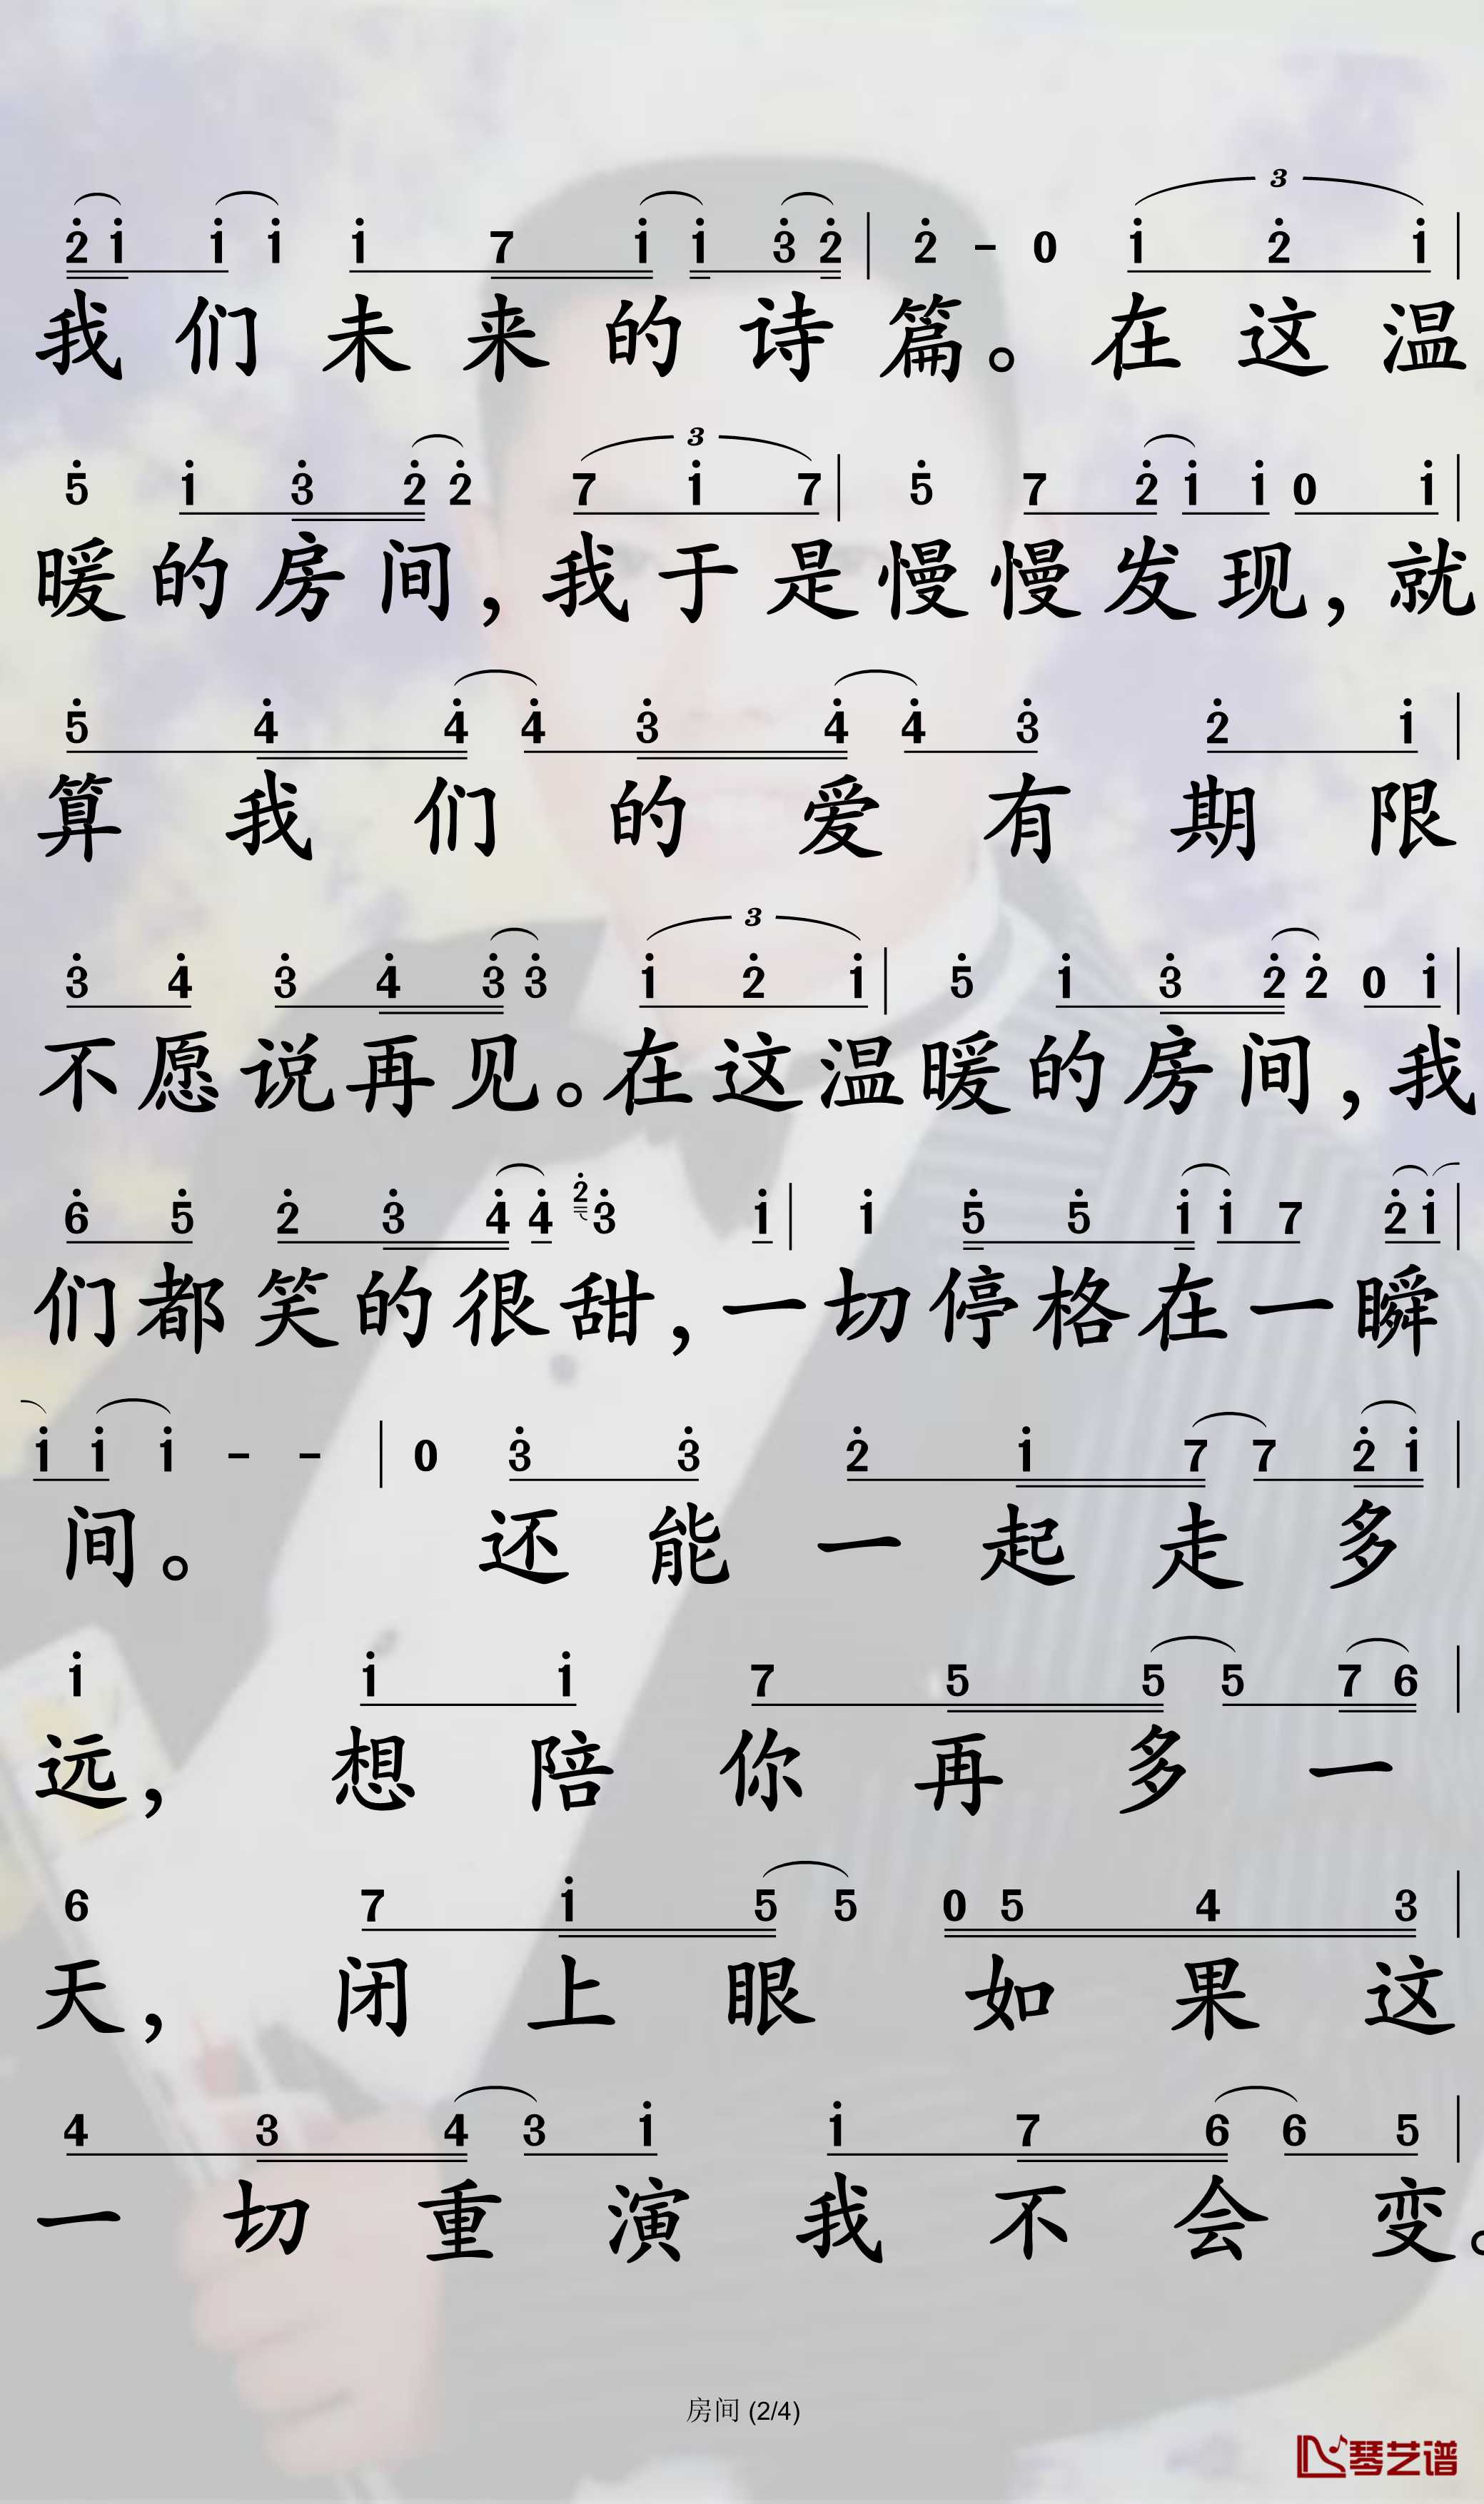 2̇ 1̇ 1̇ 1̇ 1̇ 7 1̇ 1̇ 3̇ 2̇ | 2̇ - 0 3 1̇ 2̇ 1̇ |
我们未来的诗篇。在这温
5̇ 1̇ 3̇ 2̇ 2̇ 3 7 1̇ 7 | 5̇ 7 2̇ 1̇ 1̇ 0 1̇ |
暖的房间，我于是慢慢发现，就
5̇ 4̇ 4̇ 4̇ 3̇ 4̇ 4̇ 3̇ 2̇ 1̇ |
算我们的爱有期限
3̇ 4̇ 3̇ 4̇ 3̇ 3̇ 3 1̇ 2̇ 1̇ | 5̇ 1̇ 3̇ 2̇ 2̇ 0 1̇ |
不愿说再见。在这温暖的房间，我
6̇ 5̇ 2̇ 3̇ 4̇ 4̇ 2̇ 3̇ 1̇ | 1̇ 5̇ 5̇ 1̇ 1̇ 7 2̇ 1̇ |
们都笑的很甜，一切停格在一瞬
1̇ 1̇ 1̇ - - | 0 3̇ 3̇ 2̇ 1̇ 7 7 2̇ 1̇ |
间。还能一起走多
1̇ 1̇ 1̇ 7 5 5 5 7 6 |
远，想陪你再多一
6 7 1̇ 5 5 0 5 4 3 |
天，闭上眼如果这
4 3 4 3 1̇ 1̇ 7 6 6 5 |
一切重演我不会变。
房间 (2/4)
琴艺谱